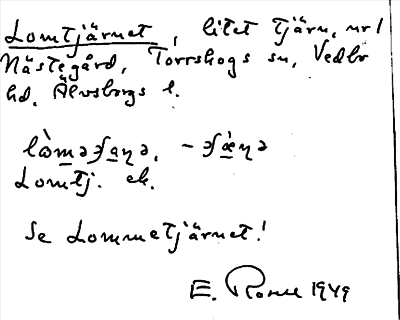 Lomtjärnet, litet tjärn, nr 1
Nästegård, Torrskogs sn, Vedbo
hd, Älvsborgs l.
Lomtj. ek.
Se Lommetjärnet!
E. 1949